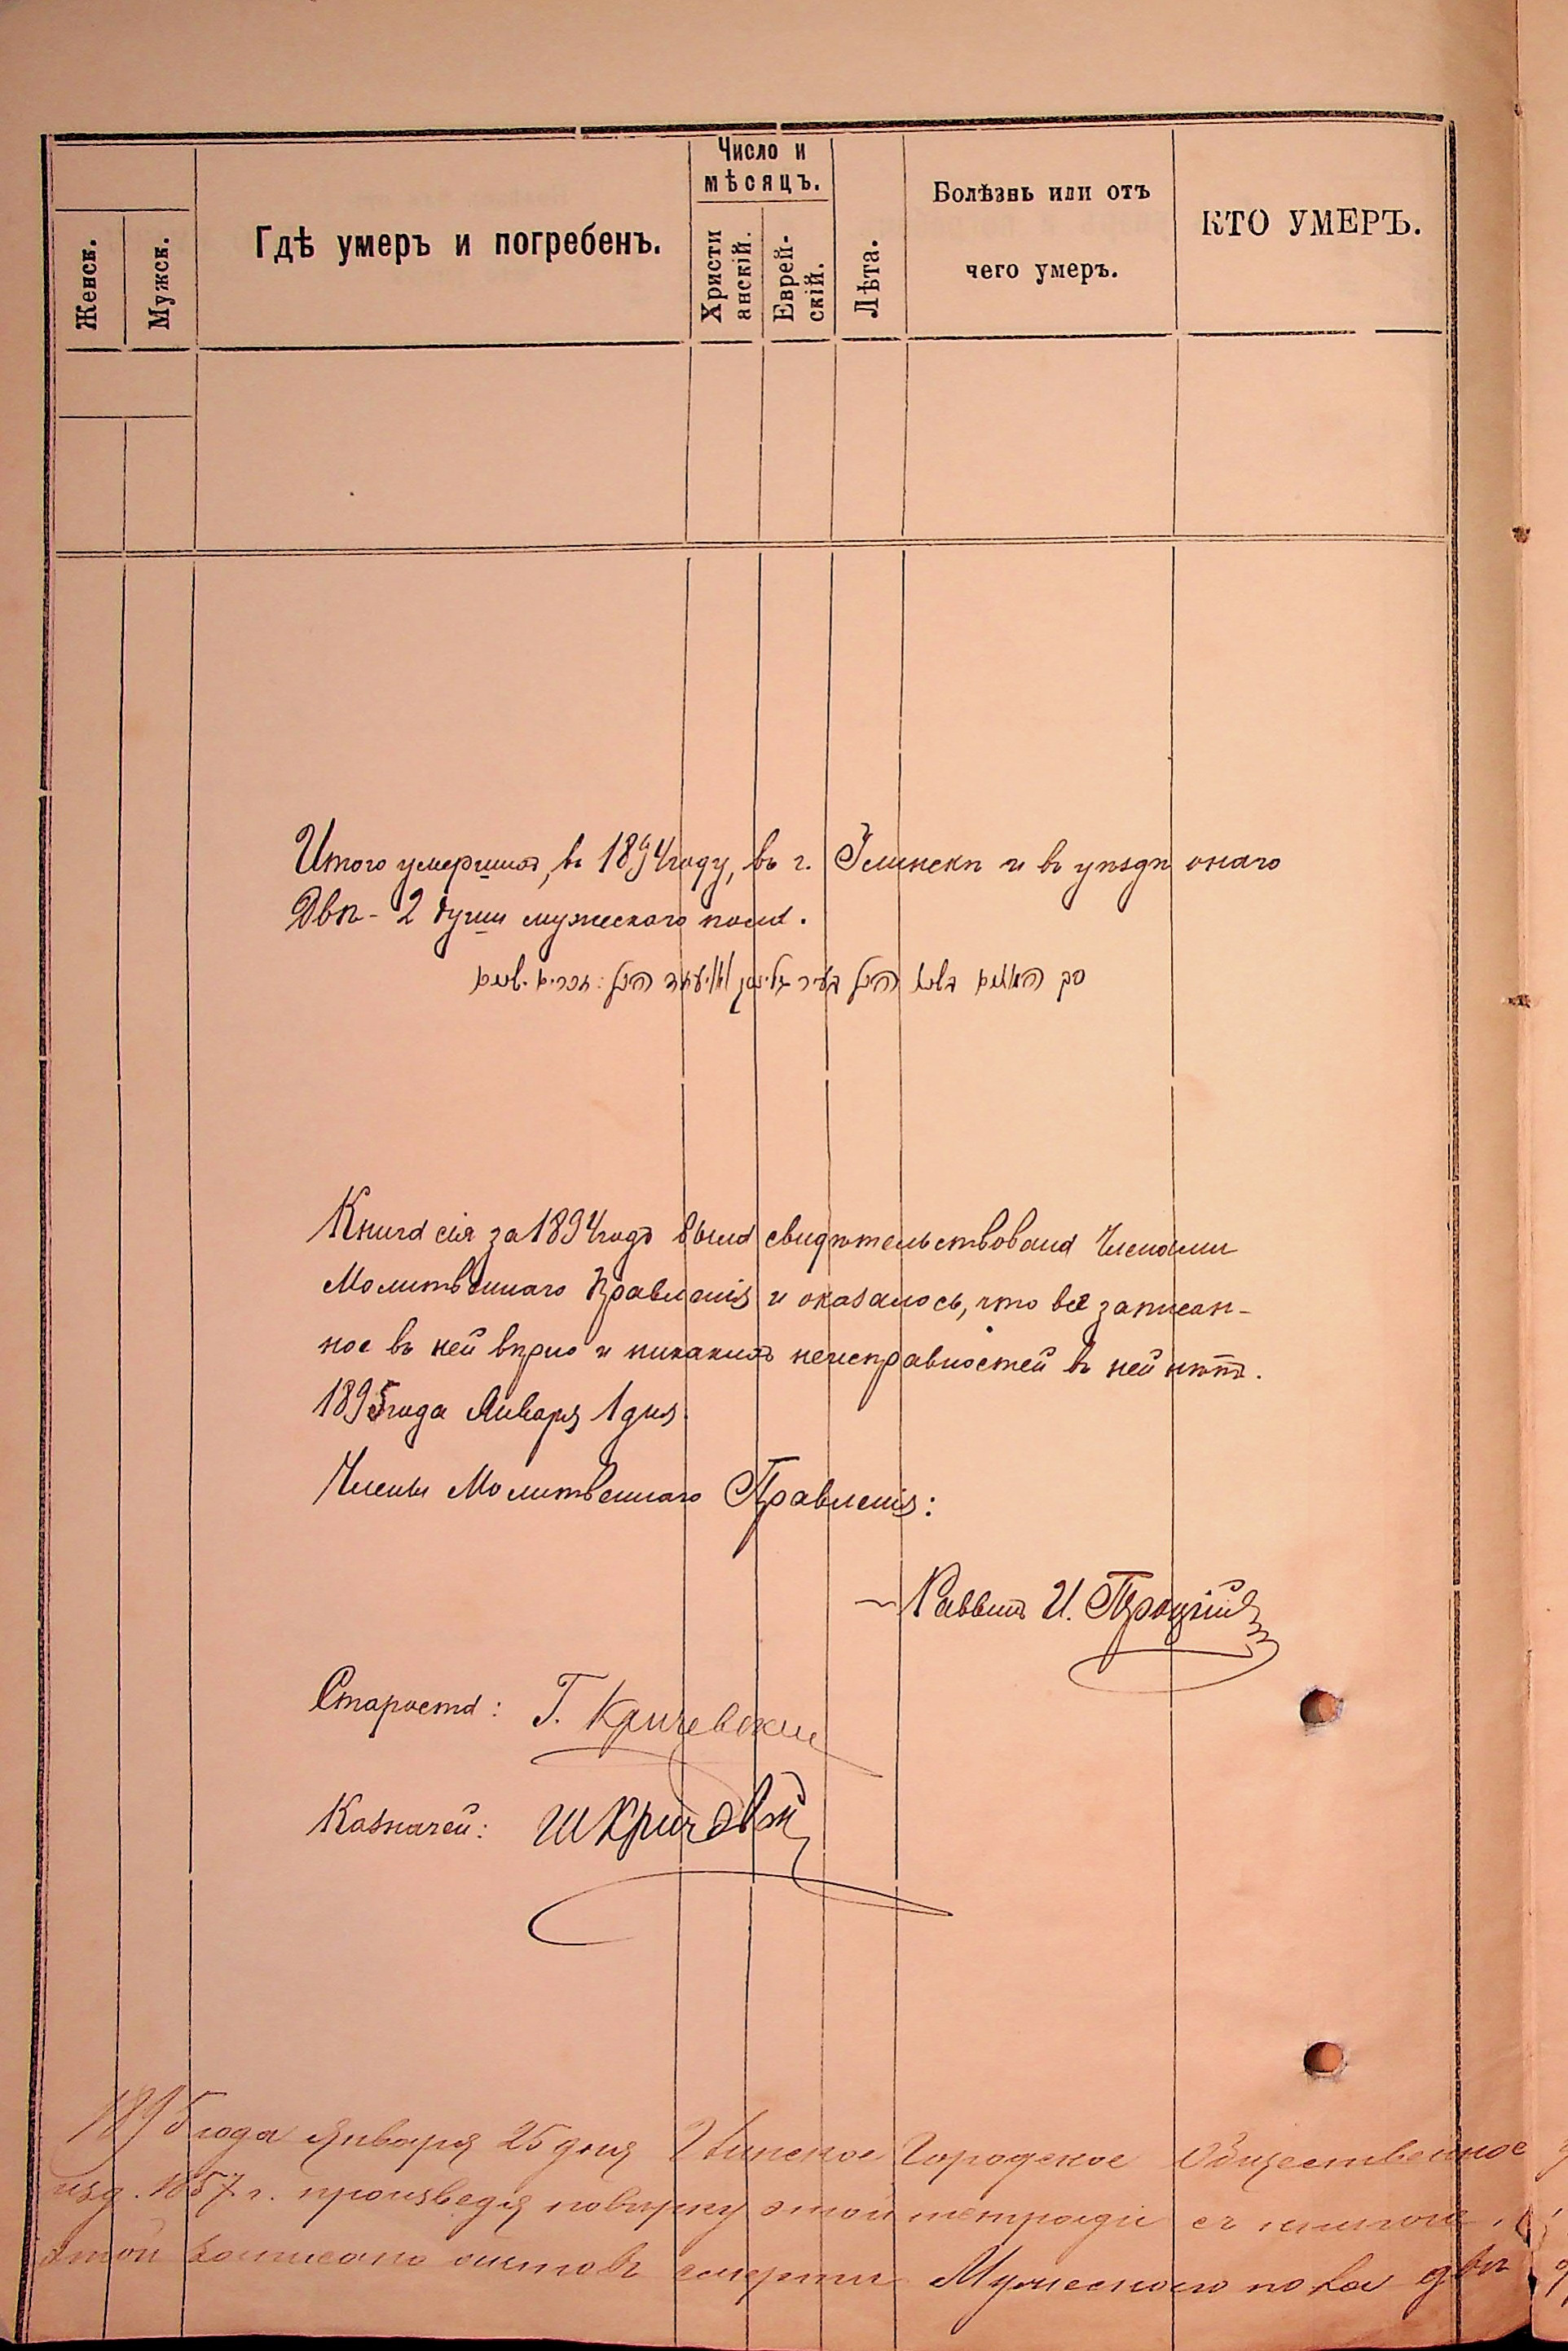 Число и
мѣсяцъ.
Женск.
Мужск.
Гдѣ умеръ и погребенъ.
Христи
анскій.
Еврей-
скій.
Лѣта.
Болѣзнь или отъ
чего умеръ.
КТО УМЕРЪ.
Итого умершихъ, въ 1894 году, въ г. Глинскѣ и въ уѣздѣ онаго
Двѣ - 2 души мужескаго пола.
סך בשנת הנ״ל בעיר הנ״ל: זכרים שנים
Книга сія за 1894 годъ была свидѣтельствована Членами
Молитвеннаго Правленія и оказалось, что всё записан-
ное въ ней вѣрно и никакихъ неисправностей въ ней нѣтъ.
1895 года Января 1 дня.
Члены Молитвеннаго Правленія:
Раввинъ И. Троцкій
Староста: Г. Кричевскій
Казначей: Ш Кричевскій
1895 года Января 25 дня Городское Общественное
изд. 1857 г. произведя повѣрку этой тетради съ книгою,
этой записано актовъ смерти Мужескаго пола двѣ